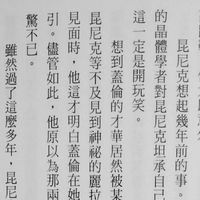 昆尼克想起幾年前的事。
的晶體學者對昆尼克坦承自己
這一定是開玩笑。
想到蓋倫的才華居然被某
昆尼克等不及見到神祕的麗拉
見面時，他這才明白蓋倫在她
引。儘管如此，他原以為那兩
驚不已。
雖然過了這麼多年，昆尼